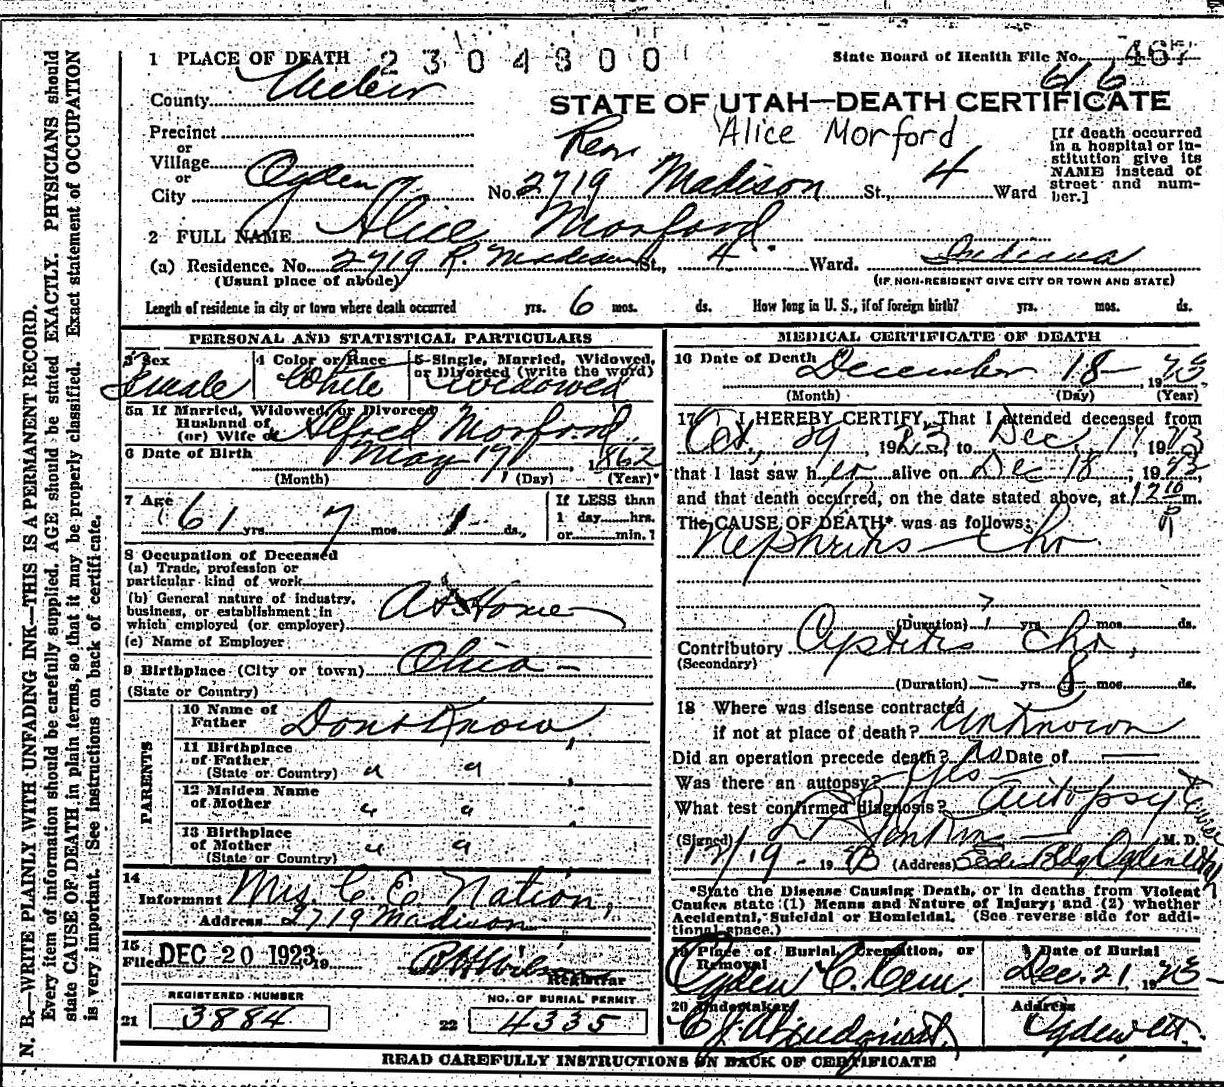 N. B.—WRITE PLAINLY WITH UNFADING INK—THIS IS A PERMANENT RECORD.
Every item of information should be carefully supplied. AGE should be stated EXACTLY. PHYSICIANS should
state CAUSE OF DEATH in plain terms, so that it may be properly classified. Exact statement of OCCUPATION
is very important. (See instructions on back of certificate.
1 PLACE OF DEATH 2304800
State Board of Health File No. 467
616
County Weber
STATE OF UTAH—DEATH CERTIFICATE
Alice Morford
Precinct
or
Village
or
City Ogden
Rear
No. 2719 Madison St., 4 Ward
[If death occurred
in a hospital or in-
stitution give its
NAME instead of
street and num-
ber.]
2 FULL NAME Alice Morford
(a) Residence. No. 2719 R. Madison St., 4 Ward. Indiana
(Usual place of abode)
(IF NON-RESIDENT GIVE CITY OR TOWN AND STATE)
Length of residence in city or town where death occurred yrs. 6 mos. ds. How long in U. S., if of foreign birth? yrs. mos. ds.
PERSONAL AND STATISTICAL PARTICULARS
3 Sex
Female
4 Color or Race
White
5 Single, Married, Widowed,
or Divorced (write the word)
Widowed
5a If Married, Widowed, or Divorced
Husband of
(or) Wife of Alfred Morford
6 Date of Birth May 19, 1862
(Month) (Day) (Year)
7 Age
61 yrs 7 mos 1 ds.,
If LESS than
1 day......hrs.
or......min.?
8 Occupation of Deceased
(a) Trade, profession or
particular kind of work
(b) General nature of industry,
business, or establishment in
which employed (or employer)
At Home
(c) Name of Employer
9 Birthplace (City or town) Ohio —
(State or Country)
PARENTS
10 Name of
Father Dont Know
11 Birthplace
of Father
(State or Country) " "
12 Maiden Name
of Mother " "
13 Birthplace
of Mother
(State or Country) " "
14
Informant Mrs. C. E. Nation,
Address 2719 Madison
15
Filed DEC 20 1923, 19
Registrar
REGISTERED NUMBER
21 3884
NO. OF BURIAL PERMIT
22 4335
MEDICAL CERTIFICATE OF DEATH
16 Date of Death December 18— 1923
(Month) (Day) (Year)
17 I HEREBY CERTIFY, That I attended deceased from
Oct., 29 1923, to Dec, 1923
that I last saw her alive on Dec 18, 1923
and that death occurred, on the date stated above, at 12 10 m.
P
The CAUSE OF DEATH* was as follows:
Nephritis — Chr
(Duration) ? yrs mos ds.
Contributory Cystitis chr,
(Secondary)
(Duration) — yrs 8 mos ds.
18 Where was disease contracted
if not at place of death? Unknown
Did an operation precede death? No Date of
Was there an autopsy? Yes
What test confirmed diagnosis? Autopsy &
(Signed) M. D.
12/19 — 1923 (Address) Eccles Bldg Ogden Utah
*State the Disease Causing Death, or in deaths from Violent
Causes state (1) Means and Nature of Injury; and (2) whether
Accidental, Suicidal or Homicidal. (See reverse side for addi-
tional space.)
19 Place of Burial, Cremation, or
Removal
Ogden C. Cem.
Date of Burial
Dec. 21 1923—
20 Undertaker
Address
Ogden Ut.
READ CAREFULLY INSTRUCTIONS ON BACK OF CERTIFICATE